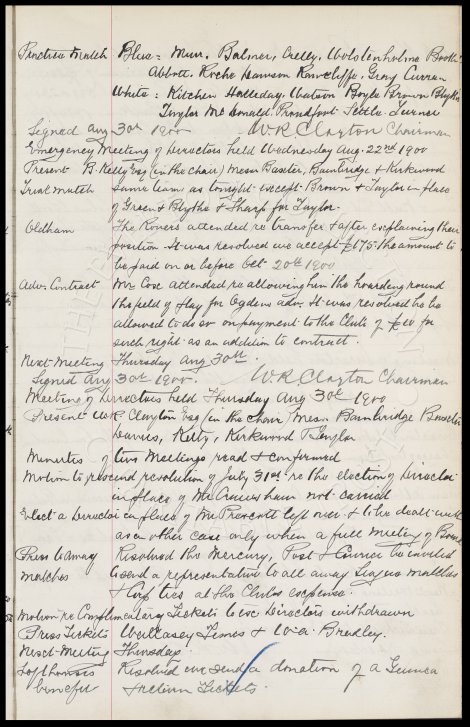 Practice Match Blue: Muir. Balmer, Crelly. Wolstenholme Booth
Abbott. Roche Dawson Rawcliffe. Gray Curran
White: Kitchen Halliday. Watson Boyle Brown Blythe
Taylor McDonald. Proudfoot Settle Turner
Signed Aug 30th 1900 W.R Clayton Chairman
Emergency Meeting of Directors held Wednesday Aug. 22nd 1900
Present B. Kelly Esq (in the chair) Messrs Baxter, Bainbridge & Kirkwood
Trial match Same team as tonight except Brown & Taylor in place
of Green & Blythe & Sharp for Taylor.
Oldham The Rovers attended re transfer & after explaining their
position it was resolved we accept £175. the amount to
be paid on or before Oct 20th 1900
Adv. Contract Mr Cox attended re allowing him the hoarding round
the field of play for Ogdens adv. It was resolved he be
allowed to do so on payment to the Club of £10 for
such right as an addition to contract.
Next Meeting Thursday Aug 30th.
Signed Aug 30th 1900. W.R Clayton Chairman
Meeting of Directors held Thursday Aug 30th 1900
Present W.R Clayton Esq (in the chair) Messrs Bainbridge Baxter
Davies, Kelly, Kirkwood & Taylor
Minutes of two Meetings read & confirmed
Motion to rescind resolution of July 31st re the election of Director
in place of Mr Crawshaw not carried
Elect a Director in place of Mr Prescott left over & to be dealt with
as in other case only when a full meeting of Board
Press to away Resolved the Mercury, Post & Courier be invited
matches to send a representative to all away League matches
& Cup ties at the Clubs expense.
Motion re Complimentary Tickets to Directors withdrawn
Press Tickets Wallasey Times & Bradley.
Next Meeting Thursday.
Lofthouses Resolved we send a donation of a Guinea
benefit & return tickets.